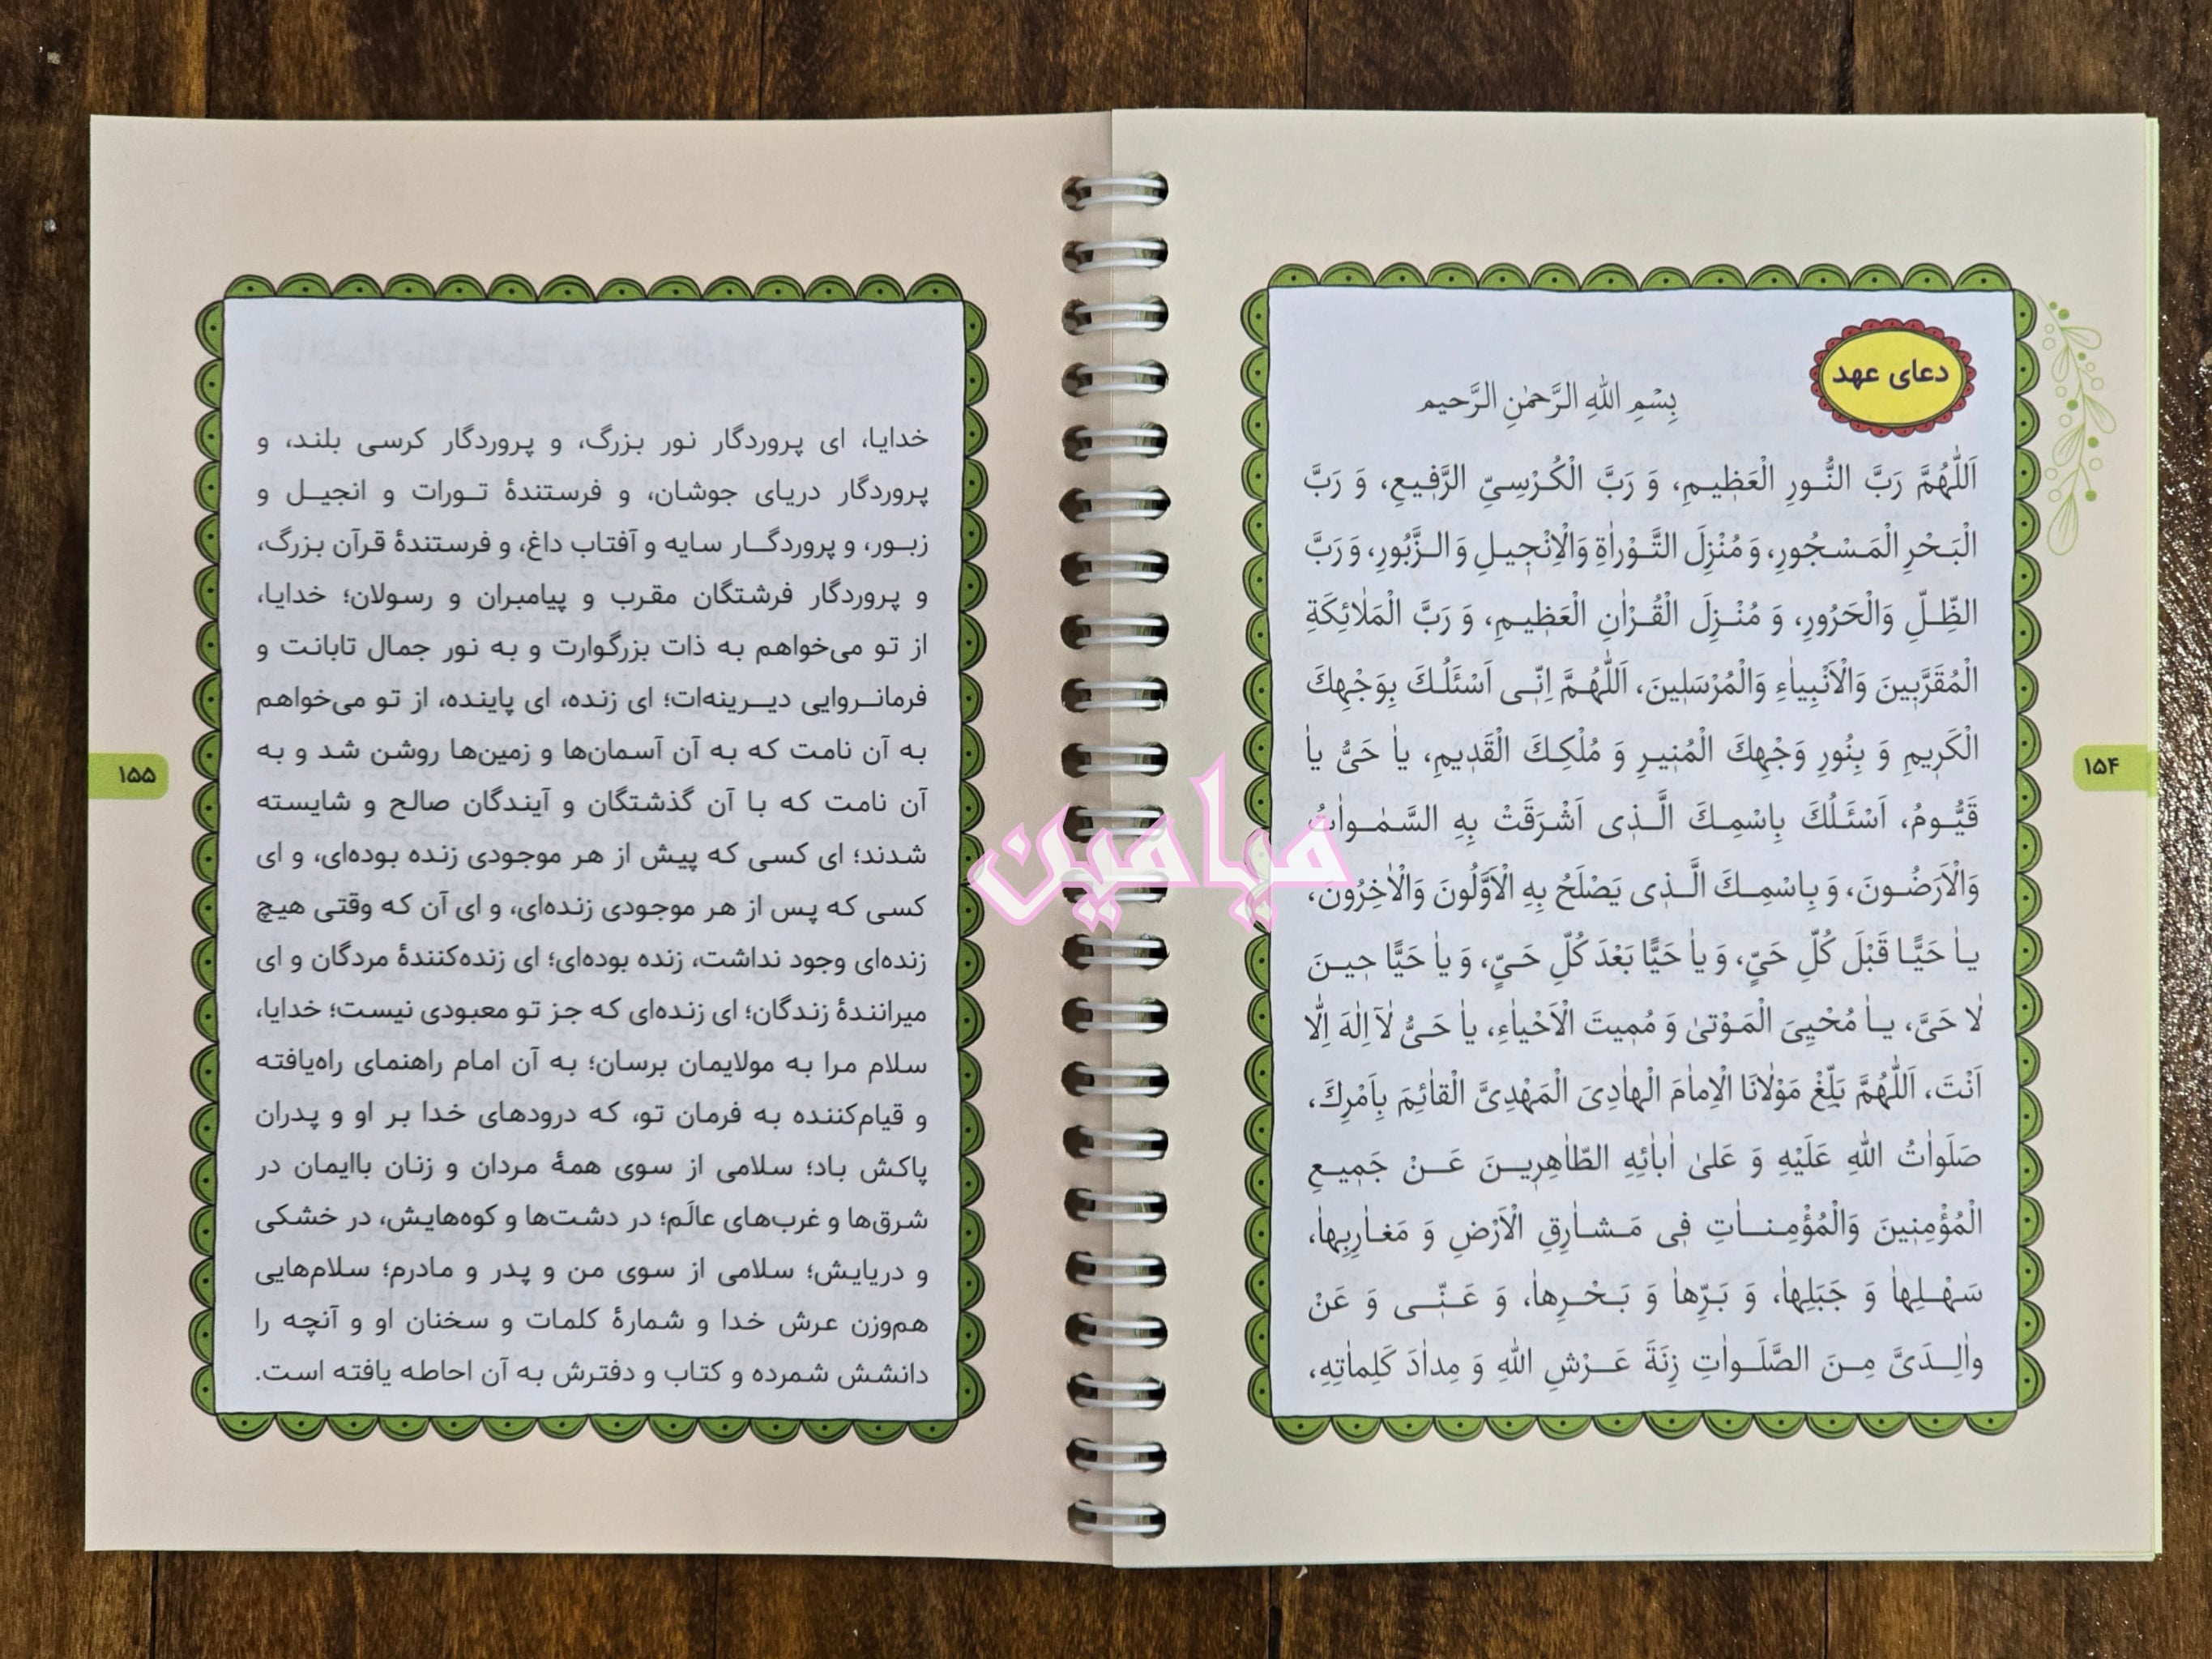 دعای عهد
بِسْمِ اللهِ الرَّحمٰنِ الرَّحیم
اَللّٰهُمَّ رَبَّ النُّـورِ الْعَظیـمِ، وَ رَبَّ الْکُـرْسِیِّ الرَّفیعِ، وَ رَبَّ
الْبَـحْرِ الْمَـسْـجُورِ، وَ مُنْزِلَ التَّـوْراٰةِ وَالْاِنْجیـلِ وَ الـزَّبُورِ، وَ رَبَّ
الظِّـلِّ وَالْحَرُورِ، وَ مُنْـزِلَ الْقُـرْاٰنِ الْعَظیـمِ، وَ رَبَّ الْمَلٰائِکَةِ
الْمُقَرَّبینَ وَالْاَنْبِیاٰءِ وَالْمُرْسَلینَ، اَللّٰهُـمَّ اِنّـی اَسْئَلُـكَ بِوَجْهِكَ
الْکَریمِ وَ بِنُورِ وَجْهِكَ الْمُنیـرِ وَ مُلْکِـكَ الْقَدیمِ، یاٰ حَیُّ یاٰ
قَیُّـومُ، اَسْئَـلُكَ بِاسْمِـكَ الَّـذی اَشْـرَقَتْ بِهِ السَّـمٰـواٰتُ
وَالْاَرَضُـونَ، وَ بِاسْمِـكَ الَّـذی یَصْلَحُ بِهِ الْاَوَّلُونَ وَالْاٰخِرُونَ،
یـاٰ حَیًّـا قَبْلَ کُلِّ حَیٍّ، وَ یاٰ حَیًّا بَعْدَ کُلِّ حَـیٍّ، وَ یاٰ حَیًّا حیـنَ
لٰا حَیَّ، یـاٰ مُحْیِیَ الْمَـوْتیٰ وَ مُمیتَ الْاَحْیاٰءِ، یاٰ حَـیُّ لٰآ اِلٰهَ اِلّٰا
اَنْتَ، اَللّٰهُمَّ بَلِّغْ مَوْلٰانَا الْاِماٰمَ الْهاٰدِیَ الْمَهْدِیَّ الْقاٰئِمَ بِاَمْرِكَ،
صَلَواٰتُ اللهِ عَلَیْهِ وَ عَلیٰ اٰباٰئِهِ الطّاٰهِریـنَ عَـنْ جَمیـعِ
الْمُؤْمِنینَ وَالْمُؤْمِنـاٰتِ فی مَـشـاٰرِقِ الْاَرْضِ وَ مَغـاٰرِبِهاٰ،
سَهْـلِهاٰ وَ جَبَلِهاٰ، وَ بَـرِّهاٰ وَ بَـحْـرِهاٰ، وَ عَـنّـی وَ عَنْ
واٰلِـدَیَّ مِـنَ الصَّلَـواٰتِ زِنَةَ عَـرْشِ اللهِ وَ مِداٰدَ کَلِماٰتِهِ،
۱۵۴
خدایا، ای پروردگار نور بزرگ، و پروردگار کرسی بلند، و
پروردگار دریای جوشان، و فرستندهٔ تـورات و انجیـل و
زبـور، و پروردگـار سایه و آفتاب داغ، و فرستندهٔ قرآن بزرگ،
و پروردگار فرشتگان مقرب و پیامبران و رسولان؛ خدایا،
از تو می‌خواهم به ذات بزرگوارت و به نور جمال تابانت و
فرمانـروایی دیـرینه‌ات؛ ای زنده، ای پاینده، از تو می‌خواهم
به آن نامت که به آن آسمان‌ها و زمین‌ها روشن شد و به
آن نامت که با آن گذشتگان و آیندگان صالح و شایسته
شدند؛ ای کسی که پیش از هر موجودی زنده بوده‌ای، و ای
کسی که پس از هر موجودی زنده‌ای، و ای آن که وقتی هیچ
زنده‌ای وجود نداشت، زنده بوده‌ای؛ ای زنده‌کنندهٔ مردگان و ای
میرانندهٔ زندگان؛ ای زنده‌ای که جز تو معبودی نیست؛ خدایا،
سلام مرا به مولایمان برسان؛ به آن امام راهنمای راه‌یافته
و قیام‌کننده به فرمان تو، که درودهای خدا بر او و پدران
پاکش باد؛ سلامی از سوی همهٔ مردان و زنان باایمان در
شرق‌ها و غرب‌های عالَم؛ در دشت‌ها و کوه‌هایش، در خشکی
و دریایش؛ سلامی از سوی من و پدر و مادرم؛ سلام‌هایی
هم‌وزن عرش خدا و شمارهٔ کلمات و سخنان او و آنچه را
دانشش شمرده و کتاب و دفترش به آن احاطه یافته است.
۱۵۵
میامین